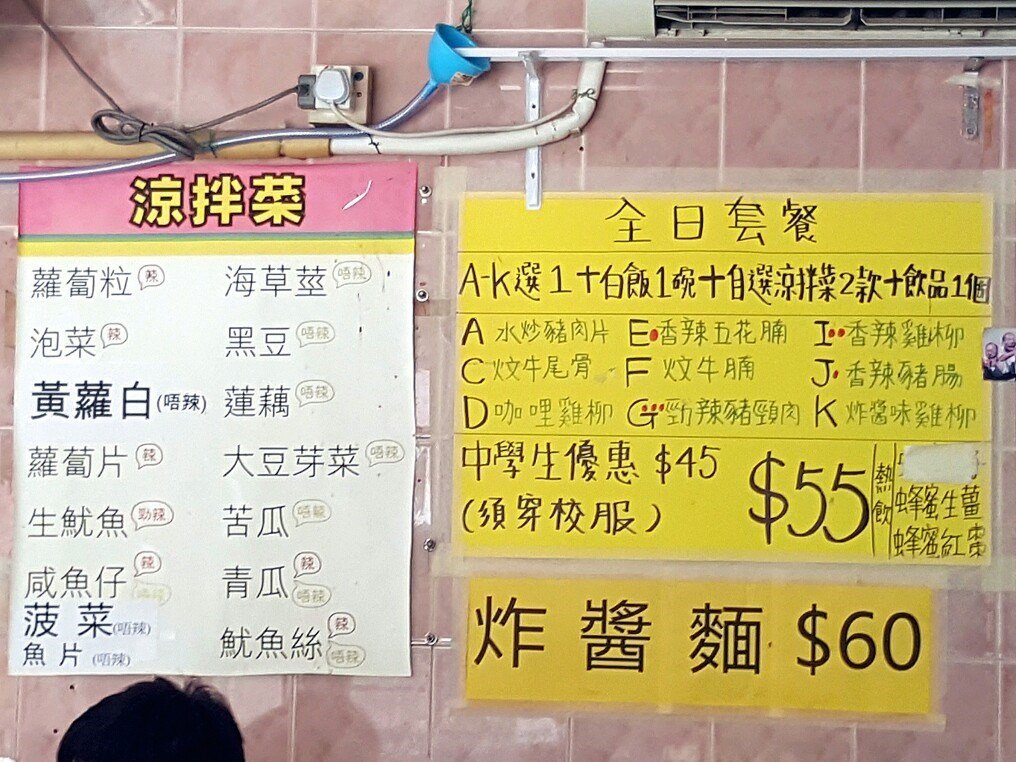 涼拌菜
蘿蔔粒 辣
泡菜 辣
黃蘿白(唔辣)
蘿蔔片 辣
生魷魚 勁辣
咸魚仔 辣 唔辣
菠菜(唔辣)
魚片(唔辣)
海草莖 唔辣
黑豆 唔辣
蓮藕 唔辣
大豆芽菜 唔辣
苦瓜 唔辣
青瓜 辣 唔辣
魷魚絲 辣 唔辣
全日套餐
A-K選1十白飯1碗十自選涼拌菜2款十飲品1個
A 水炒豬肉片 E 香辣五花腩 I 香辣雞柳
C 炆牛尾骨 F 炆牛腩 J 香辣豬腸
D 咖哩雞柳 G 勁辣豬頸肉 K 炸醬味雞柳
中學生優惠 $45
(須穿校服)
$55
熱飲
蜂蜜生薑
蜂蜜紅棗
炸醬麵 $60